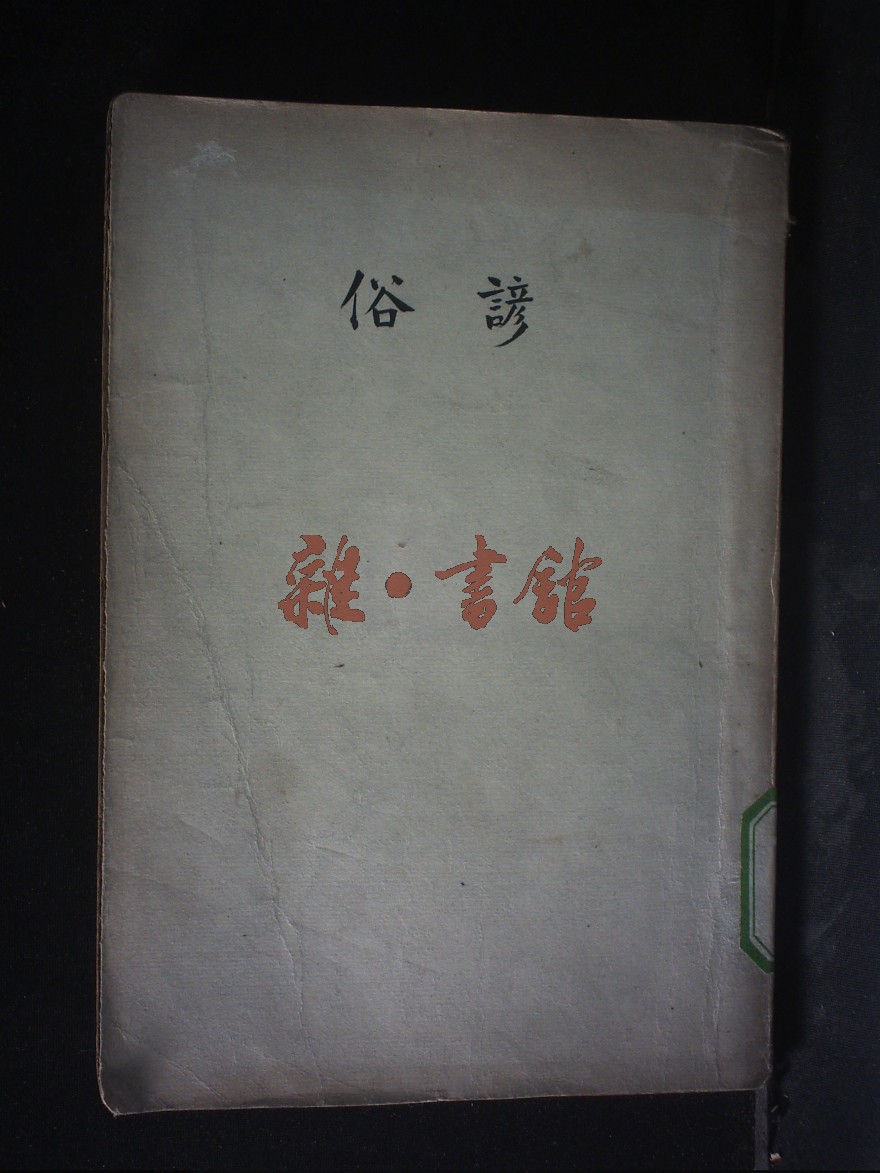 俗諺
雜·書館